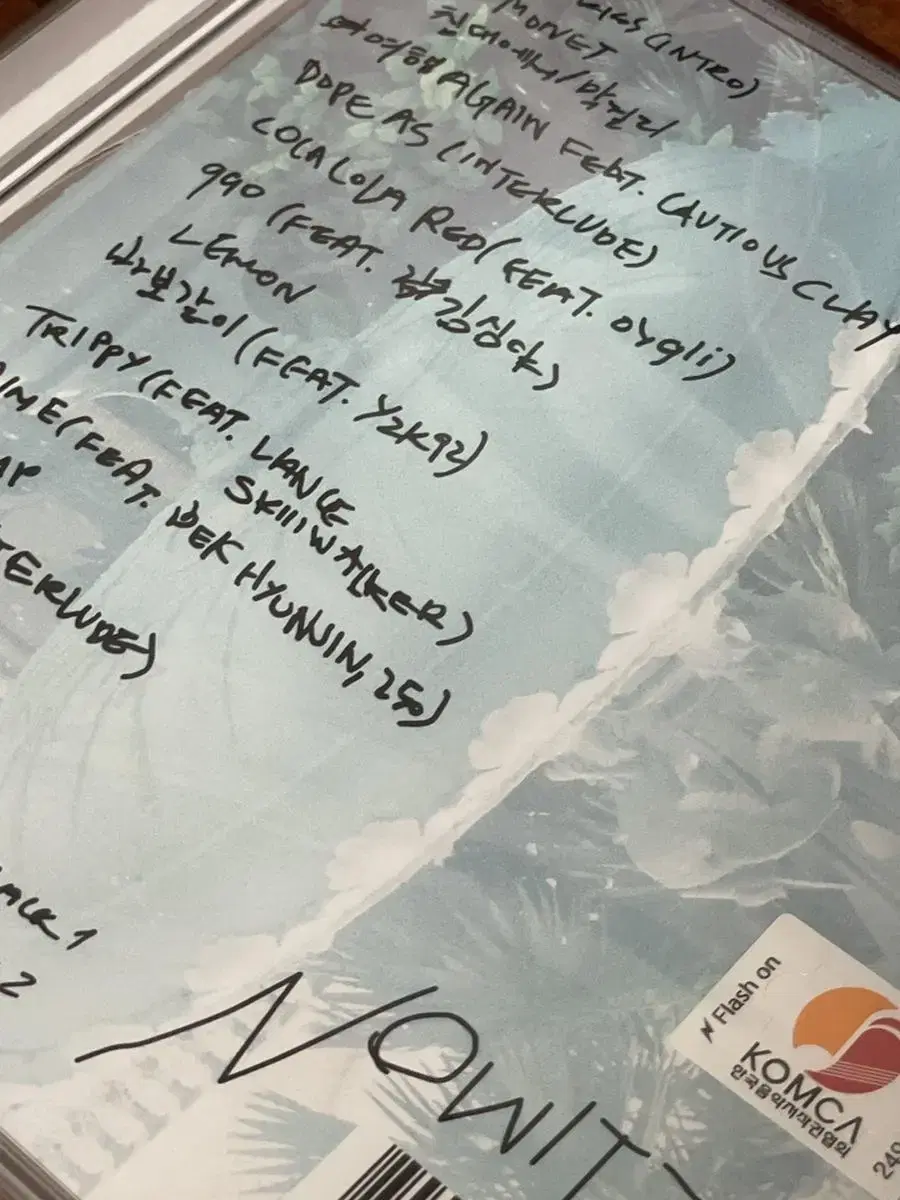 (INTRO)
MONET
침대에서/막걸리
여행 AGAIN FEAT. CAUTIOUS CLAY
DOPE AS (INTERLUDE)
COCA COLA RED (FEAT. OYGli)
990 (FEAT. 김심야)
LEMON
바보같이 (FEAT. Y2K92)
TRIPPY (FEAT. LANCE
SKiiiWALKER)
IME (FEAT. BEK HYUNJIN, 250)
MP
TERLUDE)
ACK 1
2
NOWIT
Flash on
KOMCA
한국음악저작권협회